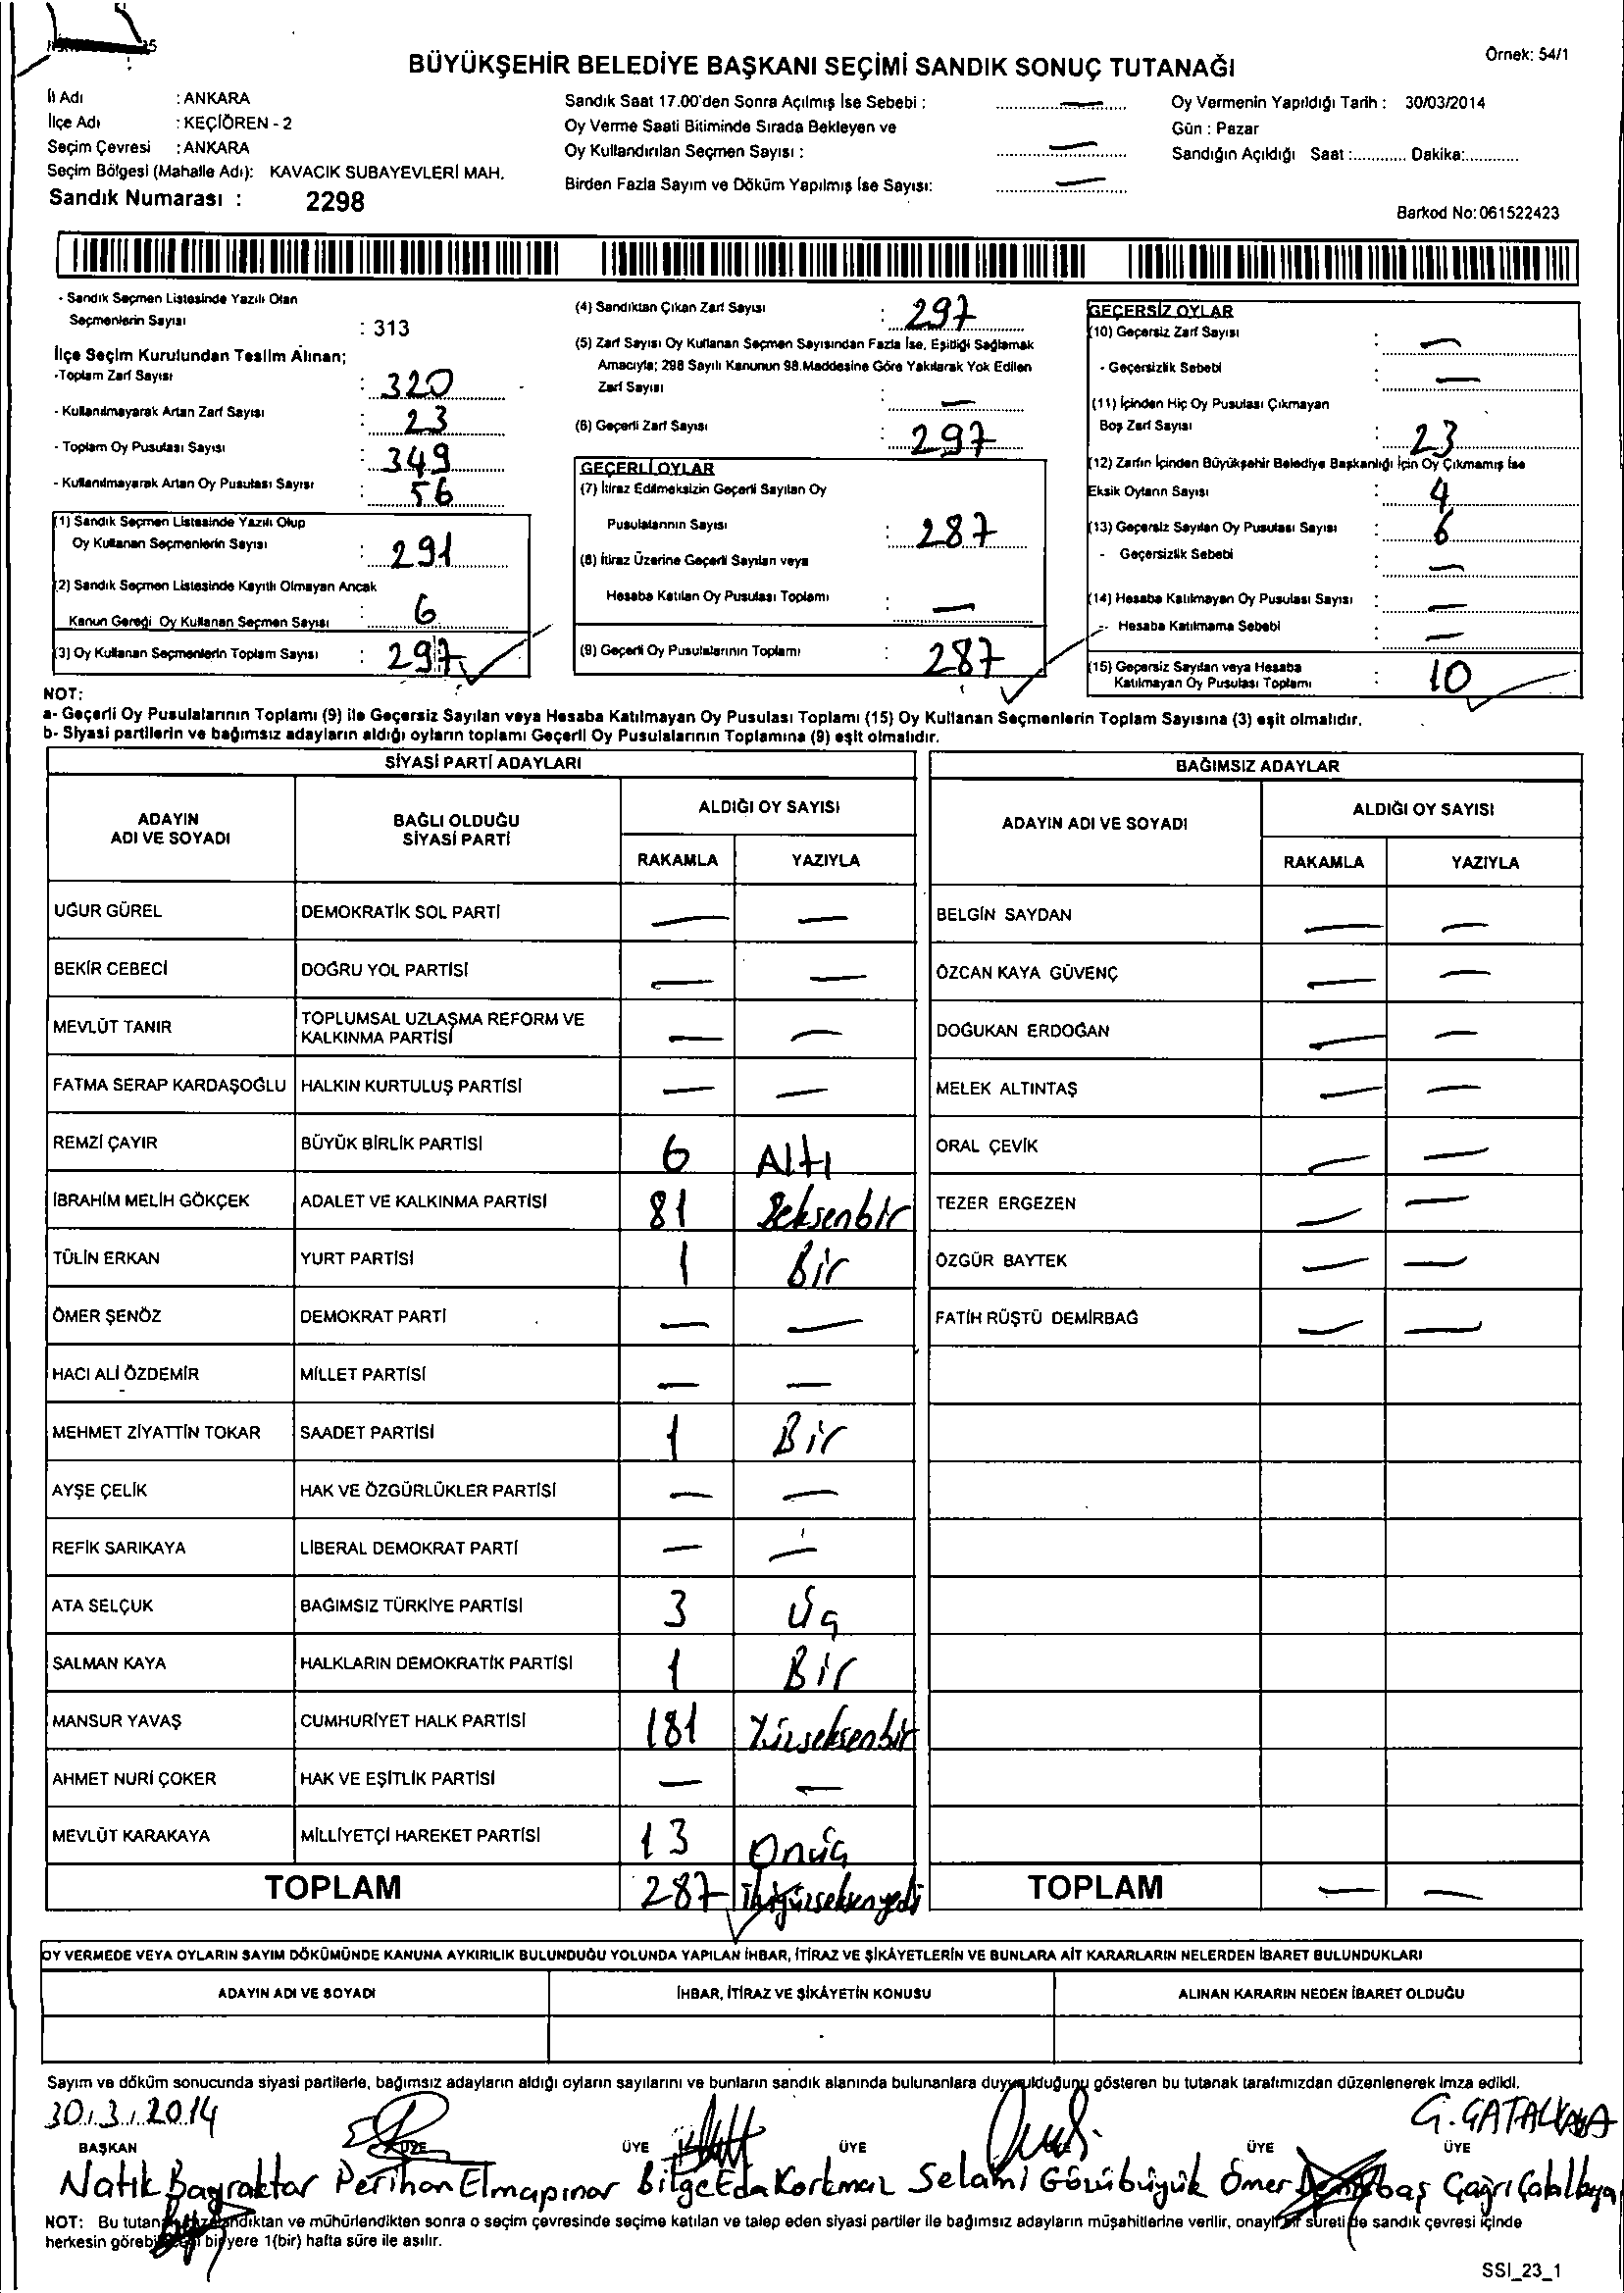 BÜYÜKŞEHİR BELEDİYE BAŞKANI SEÇİMİ SANDIK SONUÇ TUTANAĞI
Örnek: 54/1
İl Adı : ANKARA
İlçe Adı : KEÇİÖREN - 2
Seçim Çevresi : ANKARA
Seçim Bölgesi (Mahalle Adı): KAVACIK SUBAYEVLERİ MAH.
Sandık Numarası : 2298
Sandık Saat 17.00'den Sonra Açılmış İse Sebebi : —
Oy Verme Saati Bitiminde Sırada Bekleyen ve
Oy Kullandırılan Seçmen Sayısı : —
Birden Fazla Sayım ve Döküm Yapılmış İse Sayısı: —
Oy Vermenin Yapıldığı Tarih : 30/03/2014
Gün : Pazar
Sandığın Açıldığı Saat :............ Dakika:............
Barkod No: 061522423
- Sandık Seçmen Listesinde Yazılı Olan
Seçmenlerin Sayısı : 313
İlçe Seçim Kurulundan Teslim Alınan;
-Toplam Zarf Sayısı : 320
- Kullanılmayarak Artan Zarf Sayısı : 23
- Toplam Oy Pusulası Sayısı : 349
- Kullanılmayarak Artan Oy Pusulası Sayısı : 56
(1) Sandık Seçmen Listesinde Yazılı Olup
Oy Kullanan Seçmenlerin Sayısı : 291
(2) Sandık Seçmen Listesinde Kayıtlı Olmayan Ancak
Kanun Gereği Oy Kullanan Seçmen Sayısı : 6
(3) Oy Kullanan Seçmenlerin Toplam Sayısı : 297
(4) Sandıktan Çıkan Zarf Sayısı : 297
(5) Zarf Sayısı Oy Kullanan Seçmen Sayısından Fazla İse, Eşitliği Sağlamak
Amacıyla; 298 Sayılı Kanunun 98.Maddesine Göre Yakılarak Yok Edilen
Zarf Sayısı : —
(6) Geçerli Zarf Sayısı : 297
GEÇERLİ OYLAR
(7) İtiraz Edilmeksizin Geçerli Sayılan Oy
Pusulalarının Sayısı : 287
(8) İtiraz Üzerine Geçerli Sayılan veya
Hesaba Katılan Oy Pusulası Toplamı : —
(9) Geçerli Oy Pusulalarının Toplamı : 287
GEÇERSİZ OYLAR
(10) Geçersiz Zarf Sayısı : —
- Geçersizlik Sebebi : —
(11) İçinden Hiç Oy Pusulası Çıkmayan
Boş Zarf Sayısı : 23
(12) Zarfın İçinden Büyükşehir Belediye Başkanlığı İçin Oy Çıkmamış İse
Eksik Oyların Sayısı : 4
(13) Geçersiz Sayılan Oy Pusulası Sayısı : 6
- Geçersizlik Sebebi : —
(14) Hesaba Katılmayan Oy Pusulası Sayısı : —
- Hesaba Katılmama Sebebi : —
(15) Geçersiz Sayılan veya Hesaba
Katılmayan Oy Pusulası Toplamı : 10
NOT:
a- Geçerli Oy Pusulalarının Toplamı (9) ile Geçersiz Sayılan veya Hesaba Katılmayan Oy Pusulası Toplamı (15) Oy Kullanan Seçmenlerin Toplam Sayısına (3) eşit olmalıdır.
b- Siyasi partilerin ve bağımsız adayların aldığı oyların toplamı Geçerli Oy Pusulalarının Toplamına (9) eşit olmalıdır.
SİYASİ PARTİ ADAYLARI
ADAYIN ADI VE SOYADI BAĞLI OLDUĞU SİYASİ PARTİ ALDIĞI OY SAYISI
RAKAMLA YAZIYLA
UĞUR GÜREL DEMOKRATİK SOL PARTİ — —
BEKİR CEBECİ DOĞRU YOL PARTİSİ — —
MEVLÜT TANIR TOPLUMSAL UZLAŞMA REFORM VE KALKINMA PARTİSİ — —
FATMA SERAP KARDAŞOĞLU HALKIN KURTULUŞ PARTİSİ — —
REMZİ ÇAYIR BÜYÜK BİRLİK PARTİSİ 6 Altı
İBRAHİM MELİH GÖKÇEK ADALET VE KALKINMA PARTİSİ 81 Seksenbir
TÜLİN ERKAN YURT PARTİSİ 1 Bir
ÖMER ŞENÖZ DEMOKRAT PARTİ — —
HACI ALİ ÖZDEMİR MİLLET PARTİSİ — —
MEHMET ZİYATTİN TOKAR SAADET PARTİSİ 1 Bir
AYŞE ÇELİK HAK VE ÖZGÜRLÜKLER PARTİSİ — —
REFİK SARIKAYA LİBERAL DEMOKRAT PARTİ — —
ATA SELÇUK BAĞIMSIZ TÜRKİYE PARTİSİ 3 Üç
SALMAN KAYA HALKLARIN DEMOKRATİK PARTİSİ 1 Bir
MANSUR YAVAŞ CUMHURİYET HALK PARTİSİ 181 Yüzseksenbir
AHMET NURİ ÇOKER HAK VE EŞİTLİK PARTİSİ — —
MEVLÜT KARAKAYA MİLLİYETÇİ HAREKET PARTİSİ 13 Onüç
TOPLAM 287 İkiyüzseksenyedi
BAĞIMSIZ ADAYLAR
ADAYIN ADI VE SOYADI ALDIĞI OY SAYISI
RAKAMLA YAZIYLA
BELGİN SAYDAN — —
ÖZCAN KAYA GÜVENÇ — —
DOĞUKAN ERDOĞAN — —
MELEK ALTINTAŞ — —
ORAL ÇEVİK — —
TEZER ERGEZEN — —
ÖZGÜR BAYTEK — —
FATİH RÜŞTÜ DEMİRBAĞ — —
TOPLAM — —
OY VERMEDE VEYA OYLARIN SAYIM DÖKÜMÜNDE KANUNA AYKIRILIK BULUNDUĞU YOLUNDA YAPILAN İHBAR, İTİRAZ VE ŞİKÂYETLERİN VE BUNLARA AİT KARARLARIN NELERDEN İBARET BULUNDUKLARI
ADAYIN ADI VE SOYADI İHBAR, İTİRAZ VE ŞİKÂYETİN KONUSU ALINAN KARARIN NEDEN İBARET OLDUĞU
Sayım ve döküm sonucunda siyasi partilerle, bağımsız adayların aldığı oyların sayılarını ve bunların sandık alanında bulunanlara duyurulduğunu gösteren bu tutanak tarafımızdan düzenlenerek imza edildi.
30.3.2014 G.ÇATALKAYA
BAŞKAN ÜYE ÜYE ÜYE ÜYE ÜYE
Natık Bayraktar Perihan Elmapınar Bilge Eda Korkmaz Selami Gözübüyük Ömer Çağrı Çatalkaya
NOT: Bu tutanak ve mühürlendikten sonra o seçim çevresinde seçime katılan ve talep eden siyasi partiler ile bağımsız adayların müşahitlerine verilir, onaylı bir sureti de sandık çevresi içinde
herkesin bir yere 1(bir) hafta süre ile asılır.
SSI_23_1